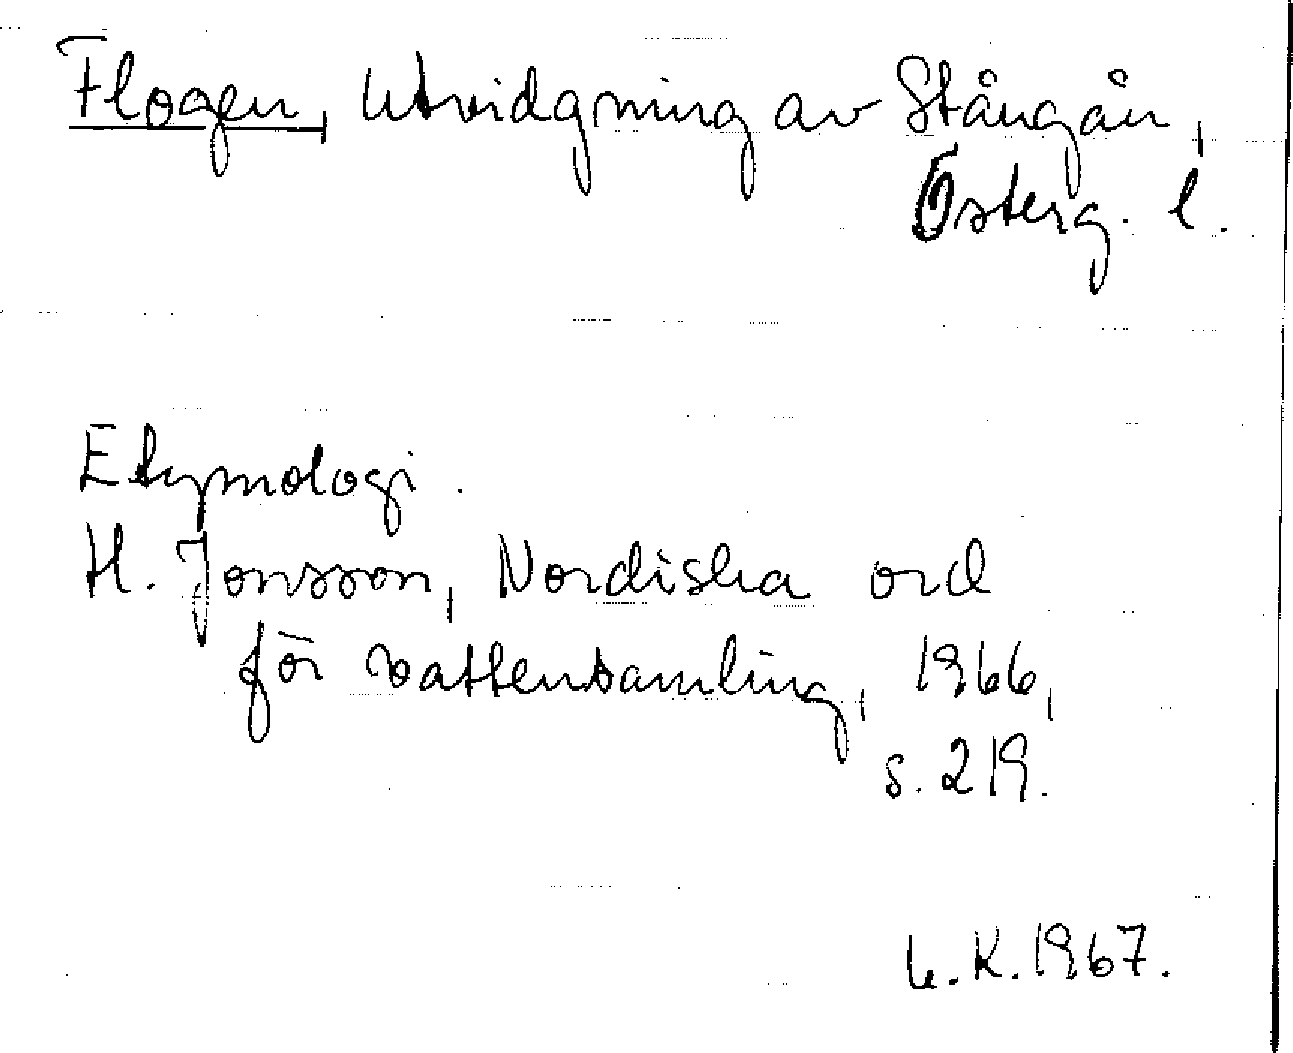 Flogen, Utvidgning av Stångån,
Österg. l.
Etymologi.
H. Jonsson, Nordiska ord
för vattensamling, 1966,
s. 219.
U.K. 1967.